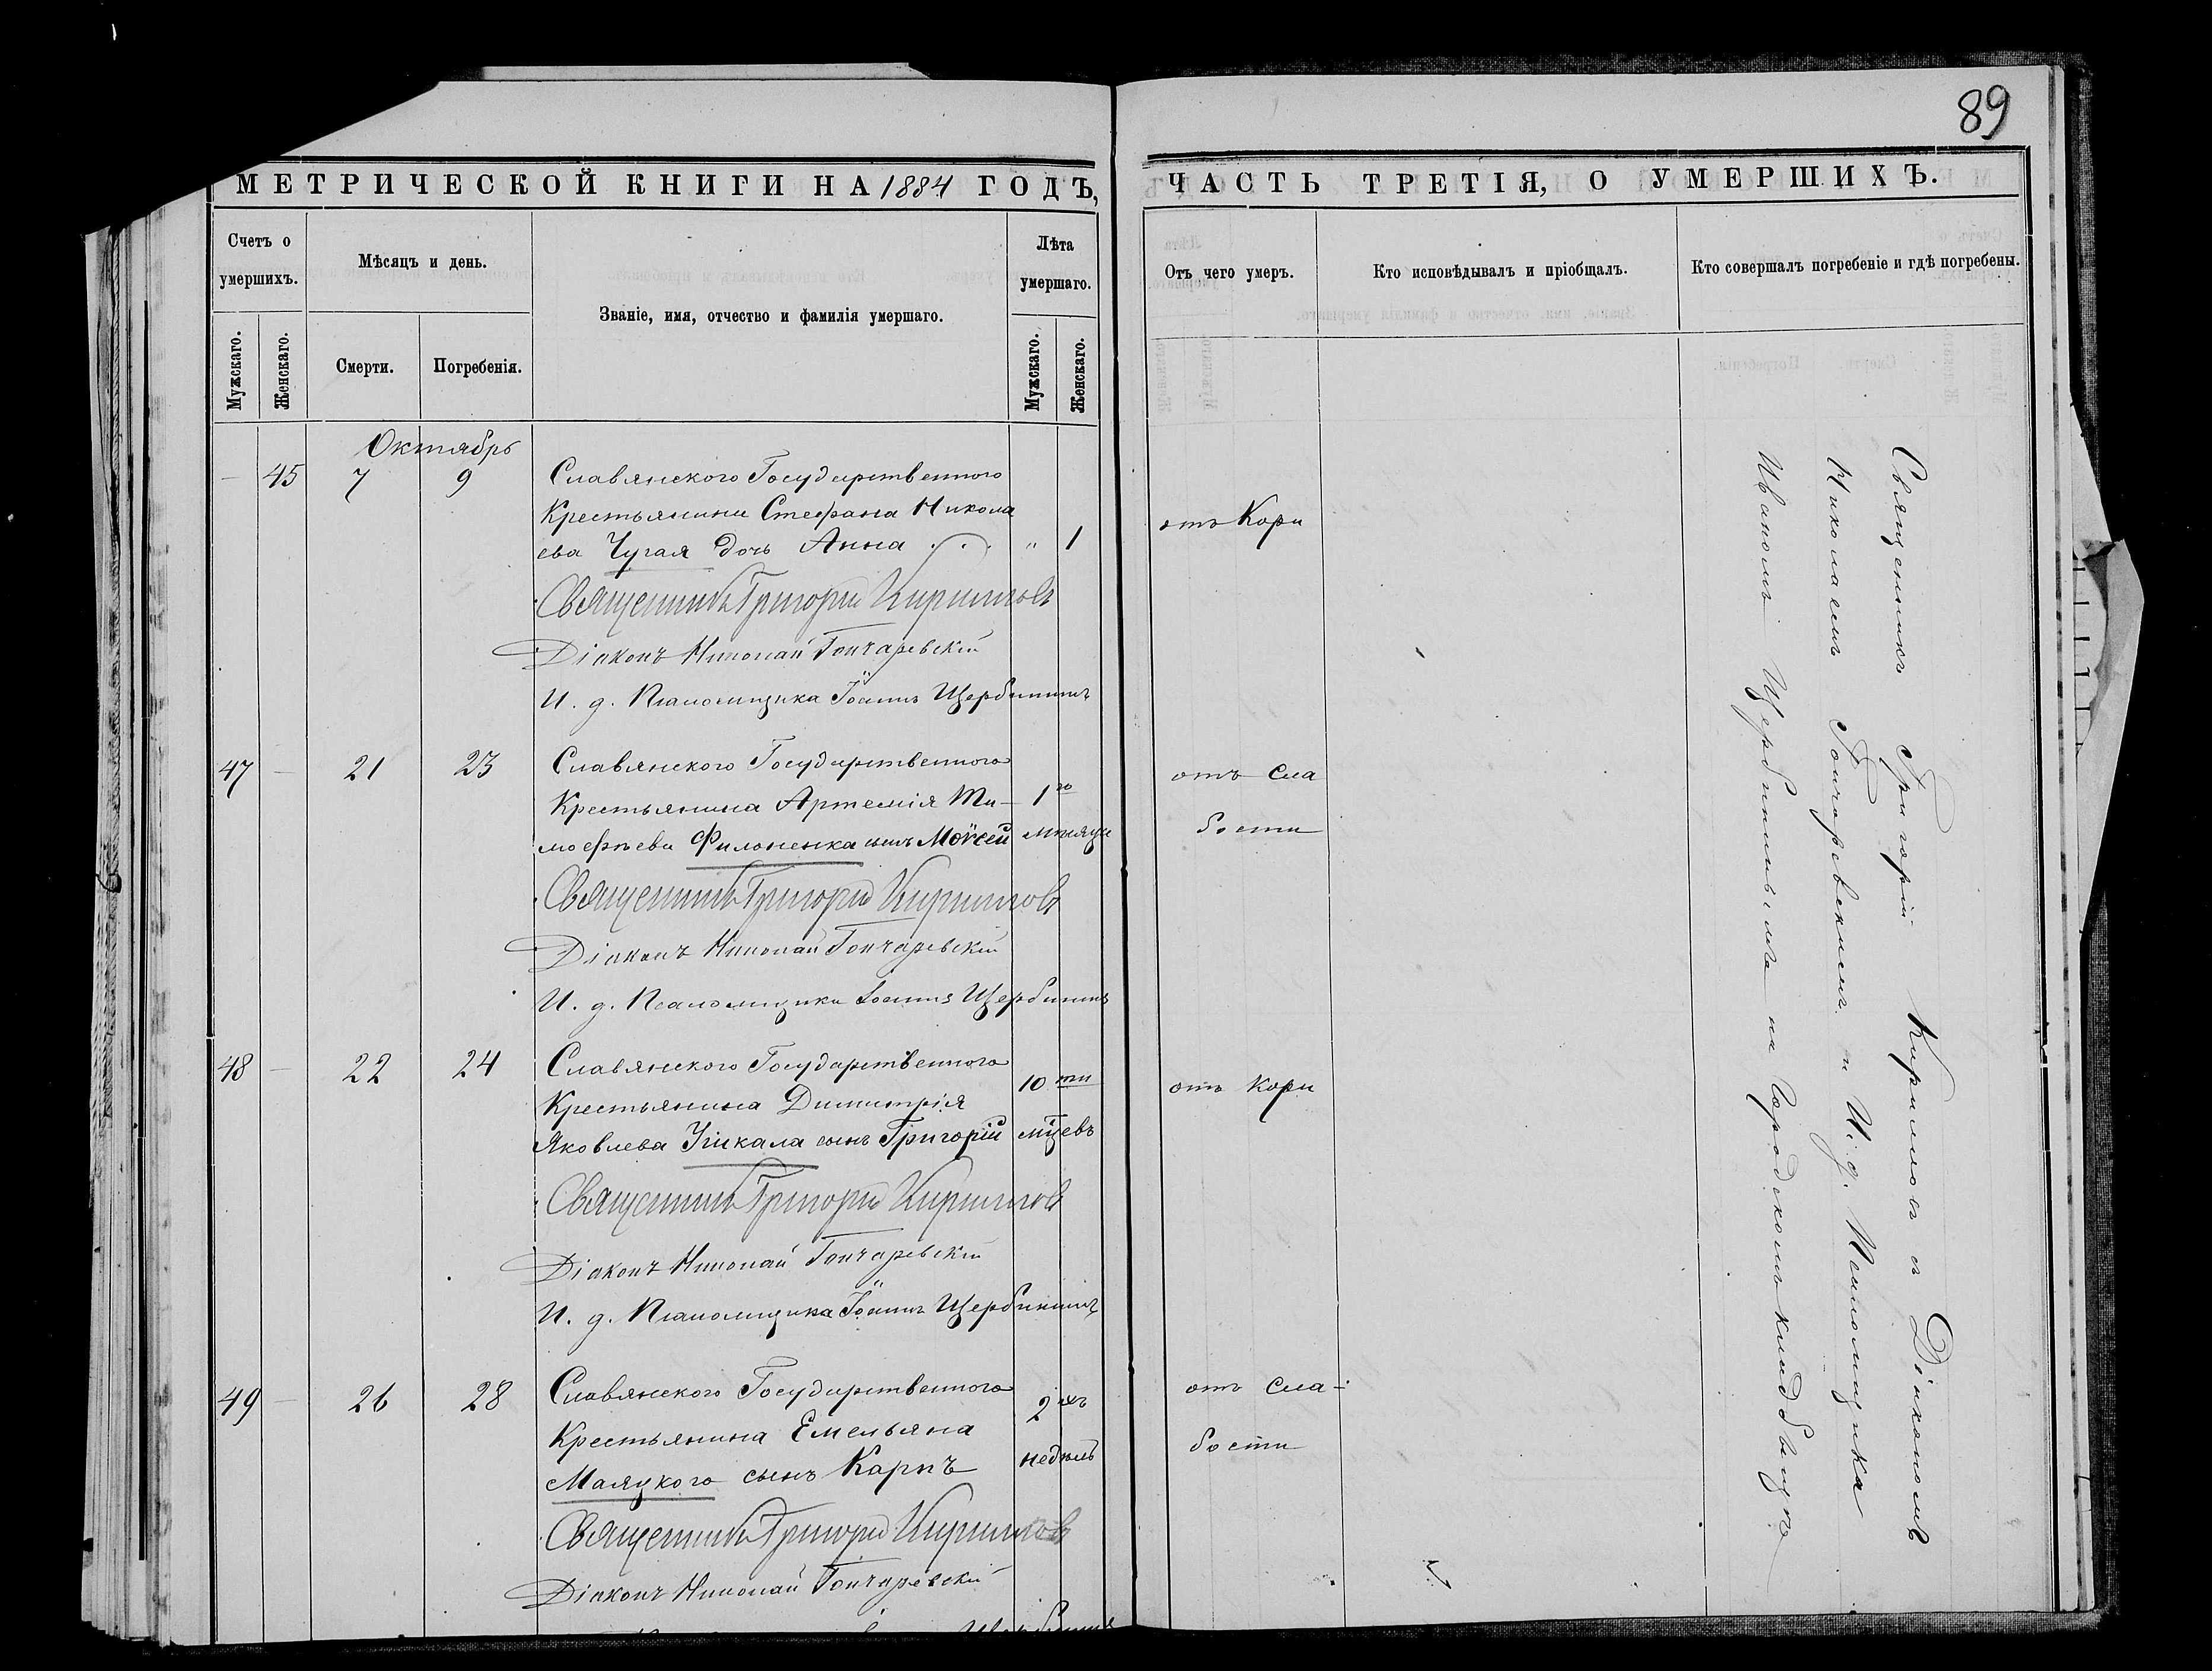 89
МЕТРИЧЕСКОЙ КНИГИ НА 1884 ГОДЪ,
ЧАСТЬ ТРЕТІЯ, О УМЕРШИХЪ.
Счетъ о умершихъ.
Мужскаго.
Женскаго.
Мѣсяцъ и день.
Смерти.
Погребенія.
Званіе, имя, отчество и фамилія умершаго.
Лѣта умершаго.
Мужскаго.
Женскаго.
Отъ чего умеръ.
Кто исповѣдывалъ и пріобщалъ.
Кто совершалъ погребеніе и гдѣ погребены.
Октябрь
— 45 7 9 Славянского Государственного
Крестьянина Стефана Никола
ева Чугая дочь Анна . . . „ 1
отъ Кори
Священникъ Григорій Кирилловъ
Діаконъ Николай Гончаревскій
И. д. Псаломщика Іоаннъ Щербининъ
47 — 21 23 Славянского Государственного
Крестьянина Артемія Ти- 1го
мофѣева Филоненка сынъ Моѵсей мѣсяца
отъ Сла
бости
Священникъ Григорій Кирилловъ
Діаконъ Николай Гончаревскій
И. д. Псаломщика Іоаннъ Щербининъ
48 — 22 24 Славянского Государственного
Крестьянина Димитрія 10ти
Яковлева сынъ Григорій мцевъ
отъ Кори
Священникъ Григорій Кирилловъ
Діаконъ Николай Гончаревскій
И. д. Псаломщика Іоаннъ Щербининъ
49 — 26 28 Славянского Государственного
Крестьянина Емельяна 2хъ
Маяцкого сынъ Карпъ недѣль
отъ Сла-
бости
Священникъ Григорій Кирилловъ
Діаконъ Николай Гончаревскій
Щербининъ
Священникъ Григорій Кирилловъ съ Діакономъ
Николаемъ Гончаревскимъ и И. д. Псаломщика
Иваномъ Щербининымъ на Городскомъ кладбищѣ